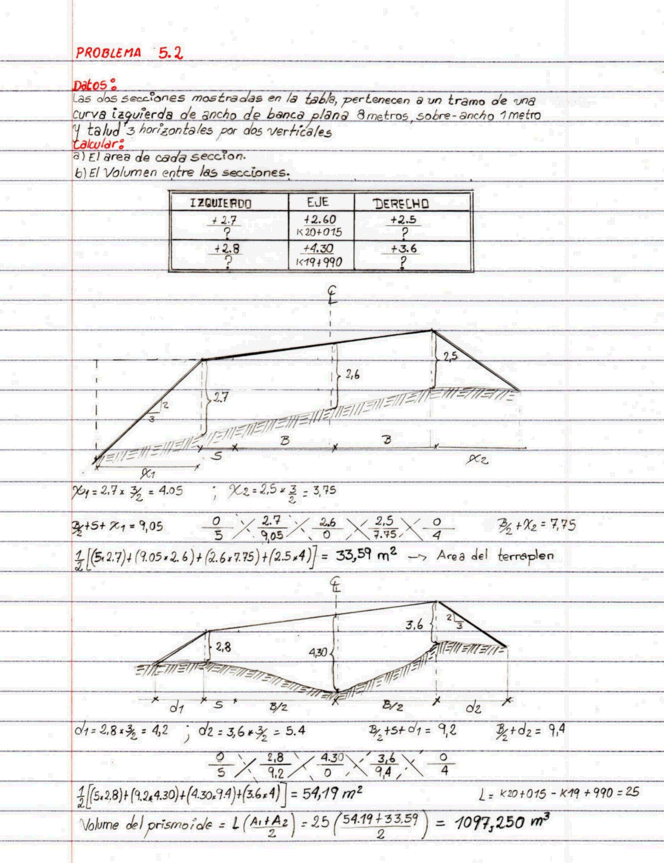 PROBLEMA 5.2
Datos:
Las dos secciones mostradas en la tabla, pertenecen a un tramo de una
curva izquierda de ancho de banca plana 8 metros, sobre-ancho 1 metro
y talud 3 horizontales por dos verticales
Calcular:
a) El area de cada seccion.
b) El Volumen entre las secciones.
IZQUIERDO EJE DERECHO
+2.7 +2.60 +2.5
? K20+015 ?
+2.8 +4.30 +3.6
? K19+990 ?
℄
2,5
2,6
2,7
2
3
S B B
X1 X2
X1 = 2.7 x 3/2 = 4.05 ; X2 = 2,5 x 3/2 = 3,75
B/2 + S + X1 = 9,05 0/5 2.7/9,05 2,6/0 2,5/7.75 0/4 B/2 + X2 = 7,75
1/2 [(5x2.7)+(9.05x2.6)+(2.6x7.75)+(2.5x4)] = 33,59 m² → Area del terraplen
℄
3,6 2
3
2,8 4,30
d1 S B/2 B/2 d2
d1 = 2,8 x 3/2 = 4,2 ; d2 = 3,6 x 3/2 = 5.4 B/2 + S + d1 = 9,2 B/2 + d2 = 9,4
0/5 2,8/9.2 4.30/0 3,6/9,4 0/4
1/2 [(5x2,8)+(9.2x4.30)+(4.30x9.4)+(3.6x4)] = 54,19 m² L = K20+015 - K19+990 = 25
Volume del prismoide = L (A1+A2 / 2) = 25 (54.19+33.59 / 2) = 1097,250 m³